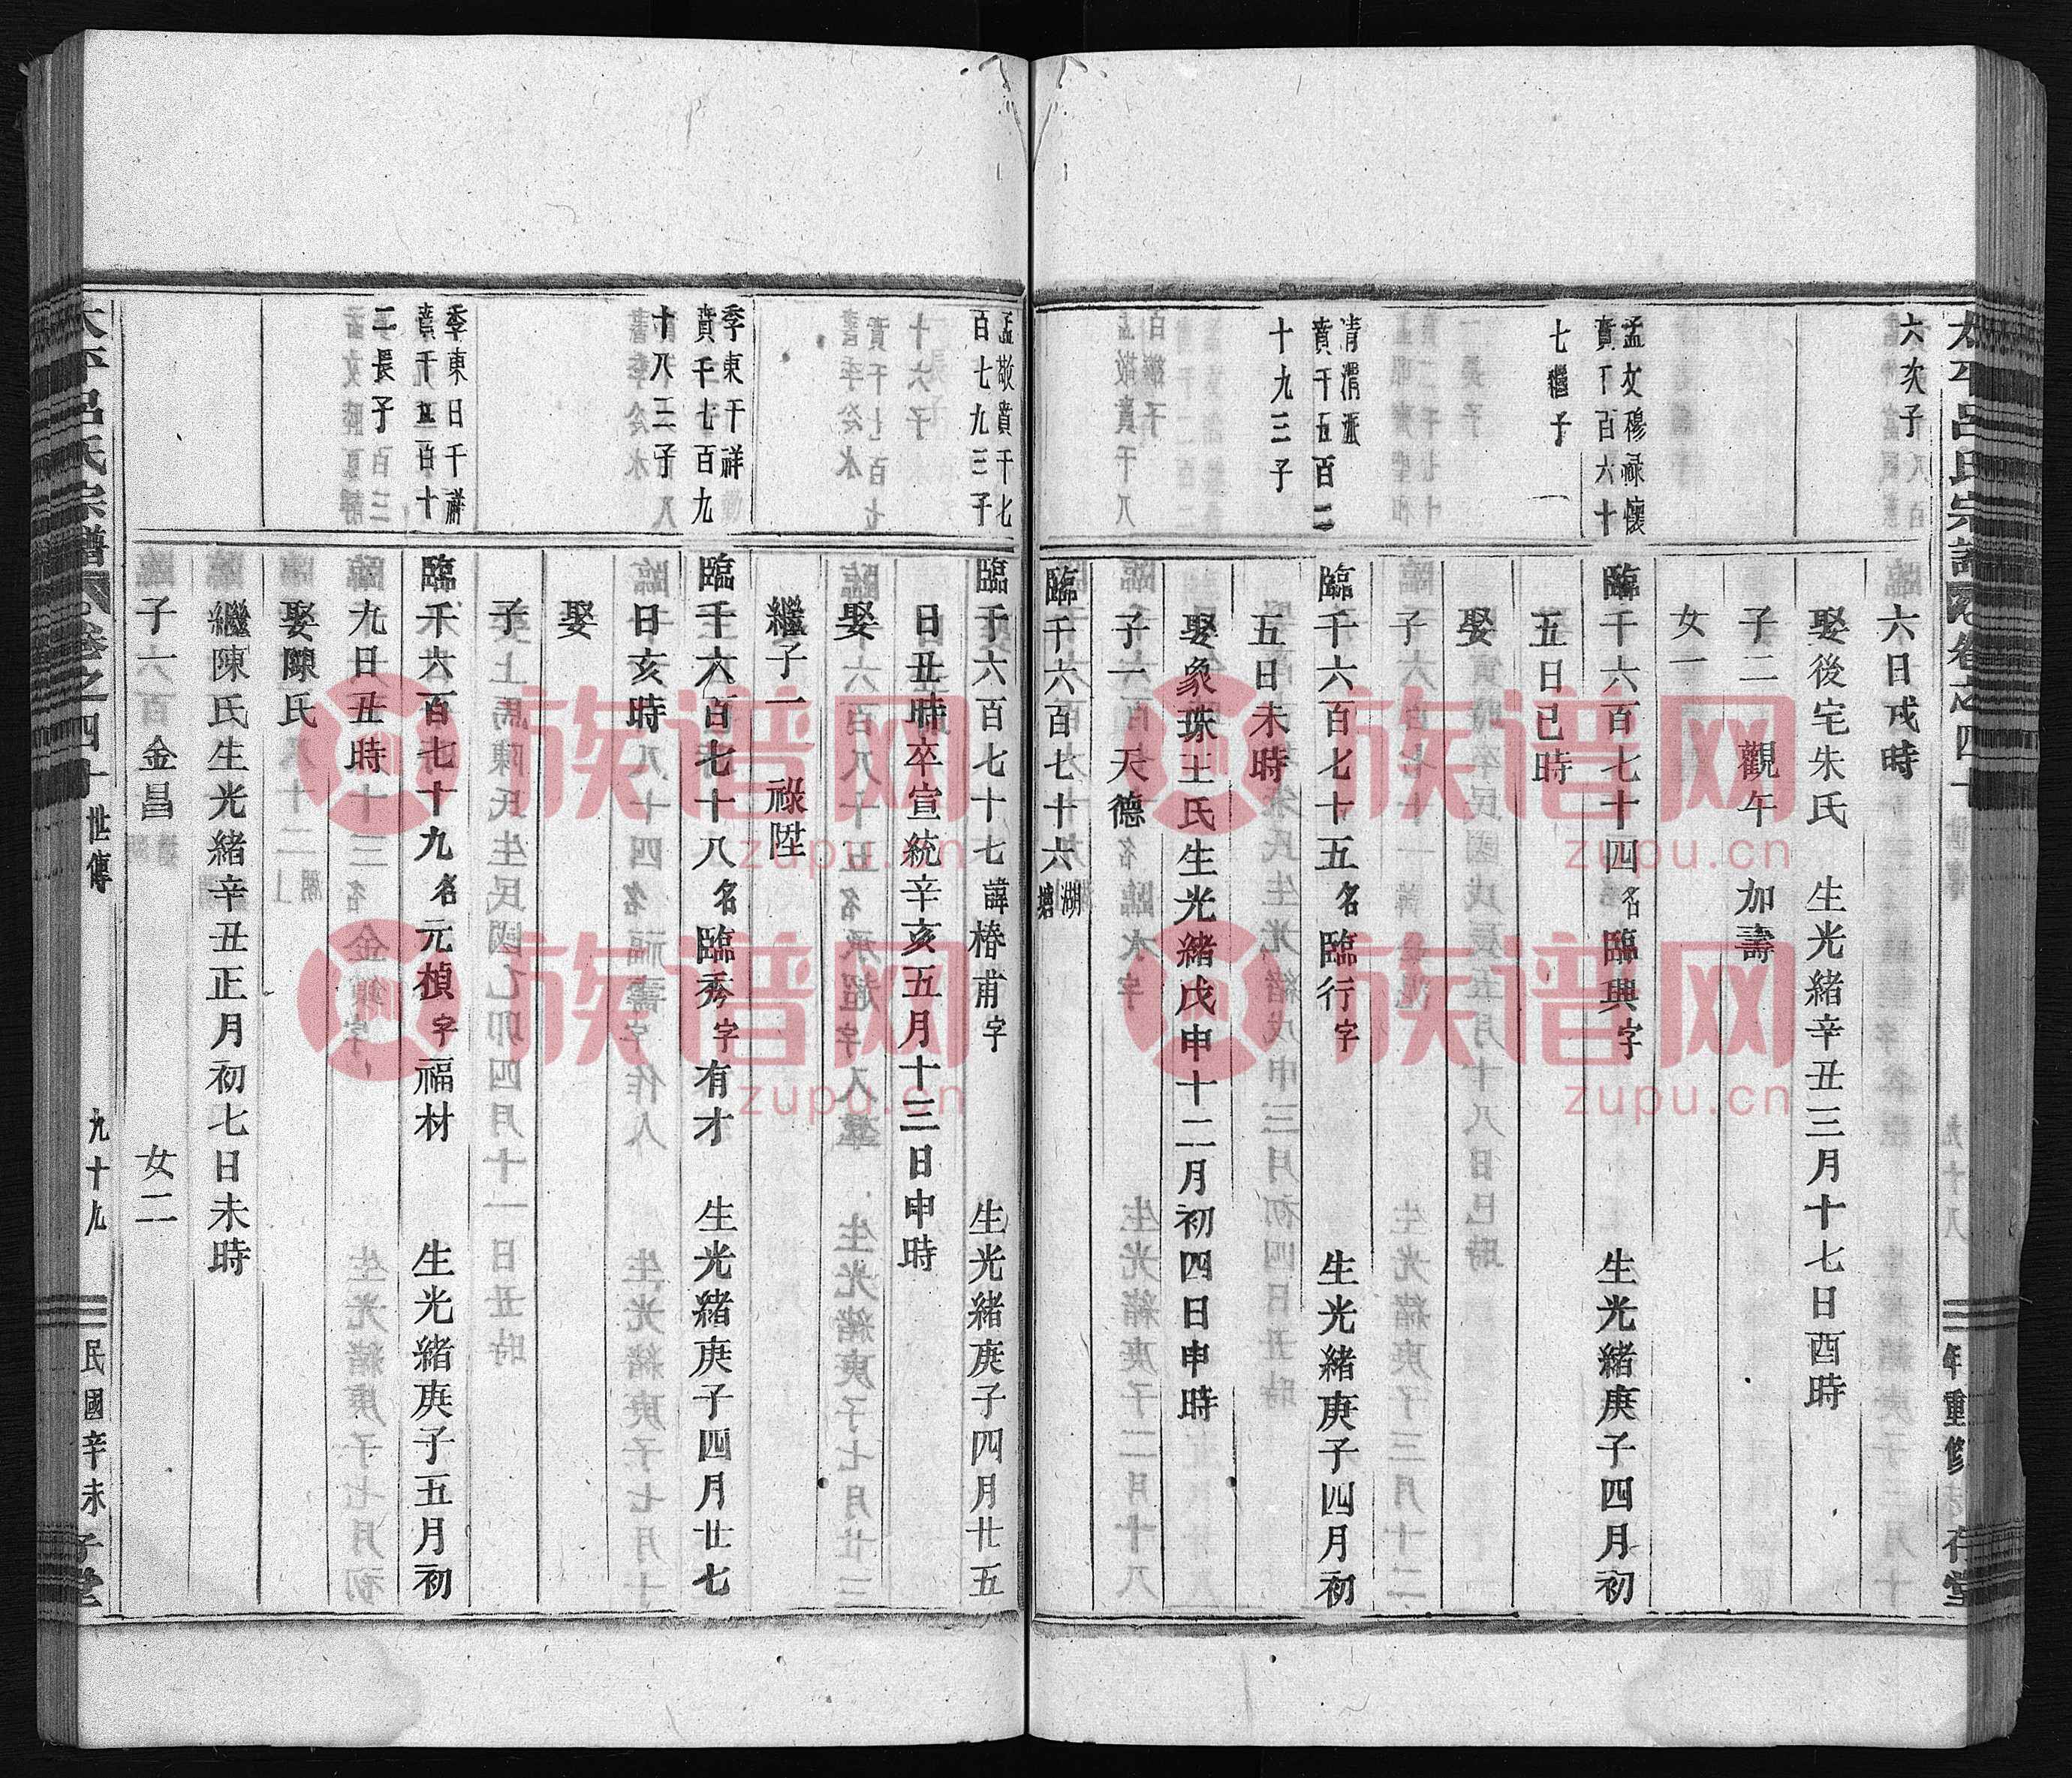 太平呂氏宗譜
卷之四十
世傳
九十八
年重修
存堂
六次子
六日戌時
娶後宅朱氏 生光緒辛丑三月十七日酉時
子二 觀午 加壽
女一
孟文穆祿懷
賁千百六十
七繼子
臨千六百七十四名臨興字 生光緒庚子四月初
五日巳時
娶
子
清渭派
賁千五百二
十九三子
臨千六百七十五名臨行字 生光緒庚子四月初
五日未時
娶象珠王氏生光緒戊申十二月初四日申時
子一 天德
臨千六百七十六湖塘
孟敬賁千七
百七九三子
臨千六百七十七諱椿甫字 生光緒庚子四月廿五
日丑時卒宣統辛亥五月十三日申時
娶
繼子一 祿陞
季東干祥
賁千七百九
十八三子
臨千六百七十八名臨秀字有才 生光緒庚子四月廿七
日亥時
娶
子
季東日千祥
賁千五百十
二長子
臨千六百七十九名元楨字福材 生光緒庚子五月初
九日丑時
娶陳氏
繼陳氏生光緒辛丑正月初七日未時
子一 金昌 女二
太平呂氏宗譜
卷之四十
世傳
九十九
民國辛未
堂
族谱网
zupu.cn
族谱网
zupu.cn
族谱网
zupu.cn
族谱网
zupu.cn